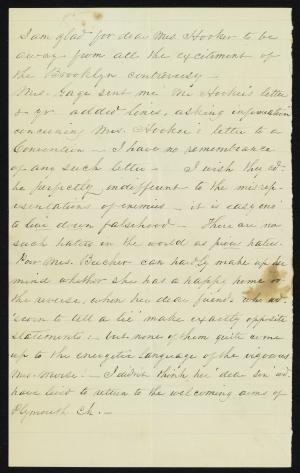 I am glad for dear Mrs. Hooker to be
away from all the excitement of
the Brooklyn controversy —
Mrs. Gage sent me Mr Hooker's letter
& yr added lines, asking information
concerning Mrs. Hooker's letter to a
Convention — I have no remembrance
of any such letter — I wish they cd
be perfectly indifferent to the misrep-
resentations of enemies — it is easy enō
to live down falsehood — There are no
such haters in the world as pious haters.
Poor Mrs. Beecher can hardly make up her
mind whether she has a happy home or
the reverse, when her dear friends who wd
"scorn to tell a lie" make exactly opposite
statements: — but none of them quite come
up to the energetic language of the vigorous
Mrs. Morse! — I didn't think her "dear son" wd
have lived to return to the welcoming arms of
Plymouth Ch. —